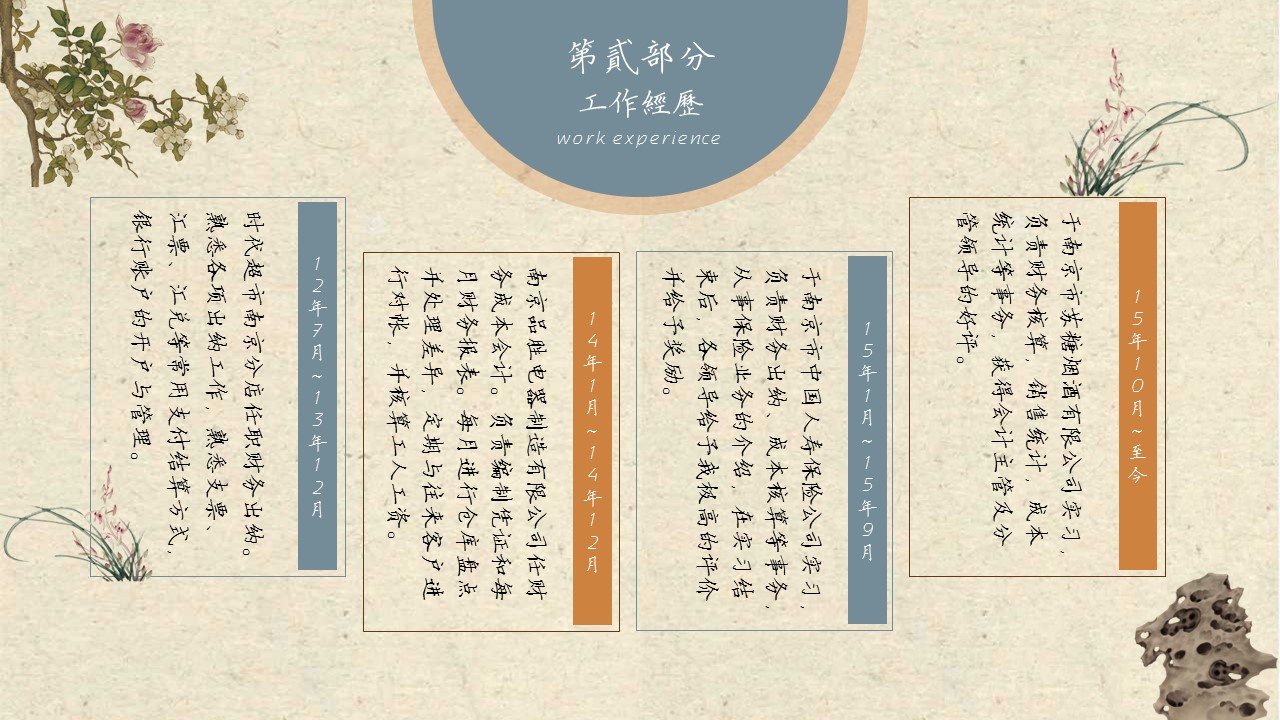 第貳部分
工作經歷
work experience
15年10月~至今
于南京市苏糖烟酒有限公司实习，
负责财务核算，销售统计，成本
统计等事务，获得会计主管及分
管领导的好评。
15年1月~15年9月
于南京市中国人寿保险公司实习，
负责财务出纳、成本核算等事务，
从事保险业务的介绍，在实习结
束后，各领导给予我极高的评价
并给予奖励。
14年1月~14年12月
南京品胜电器制造有限公司任财
务成本会计。负责编制凭证和每
月财务报表。每月进行仓库盘点
并处理差异，定期与往来客户进
行对帐，并核算工人工资。
12年7月~13年12月
时代超市南京分店任职财务出纳。
熟悉各项出纳工作，熟悉支票、
汇票、汇兑等常用支付结算方式，
银行账户的开户与管理。